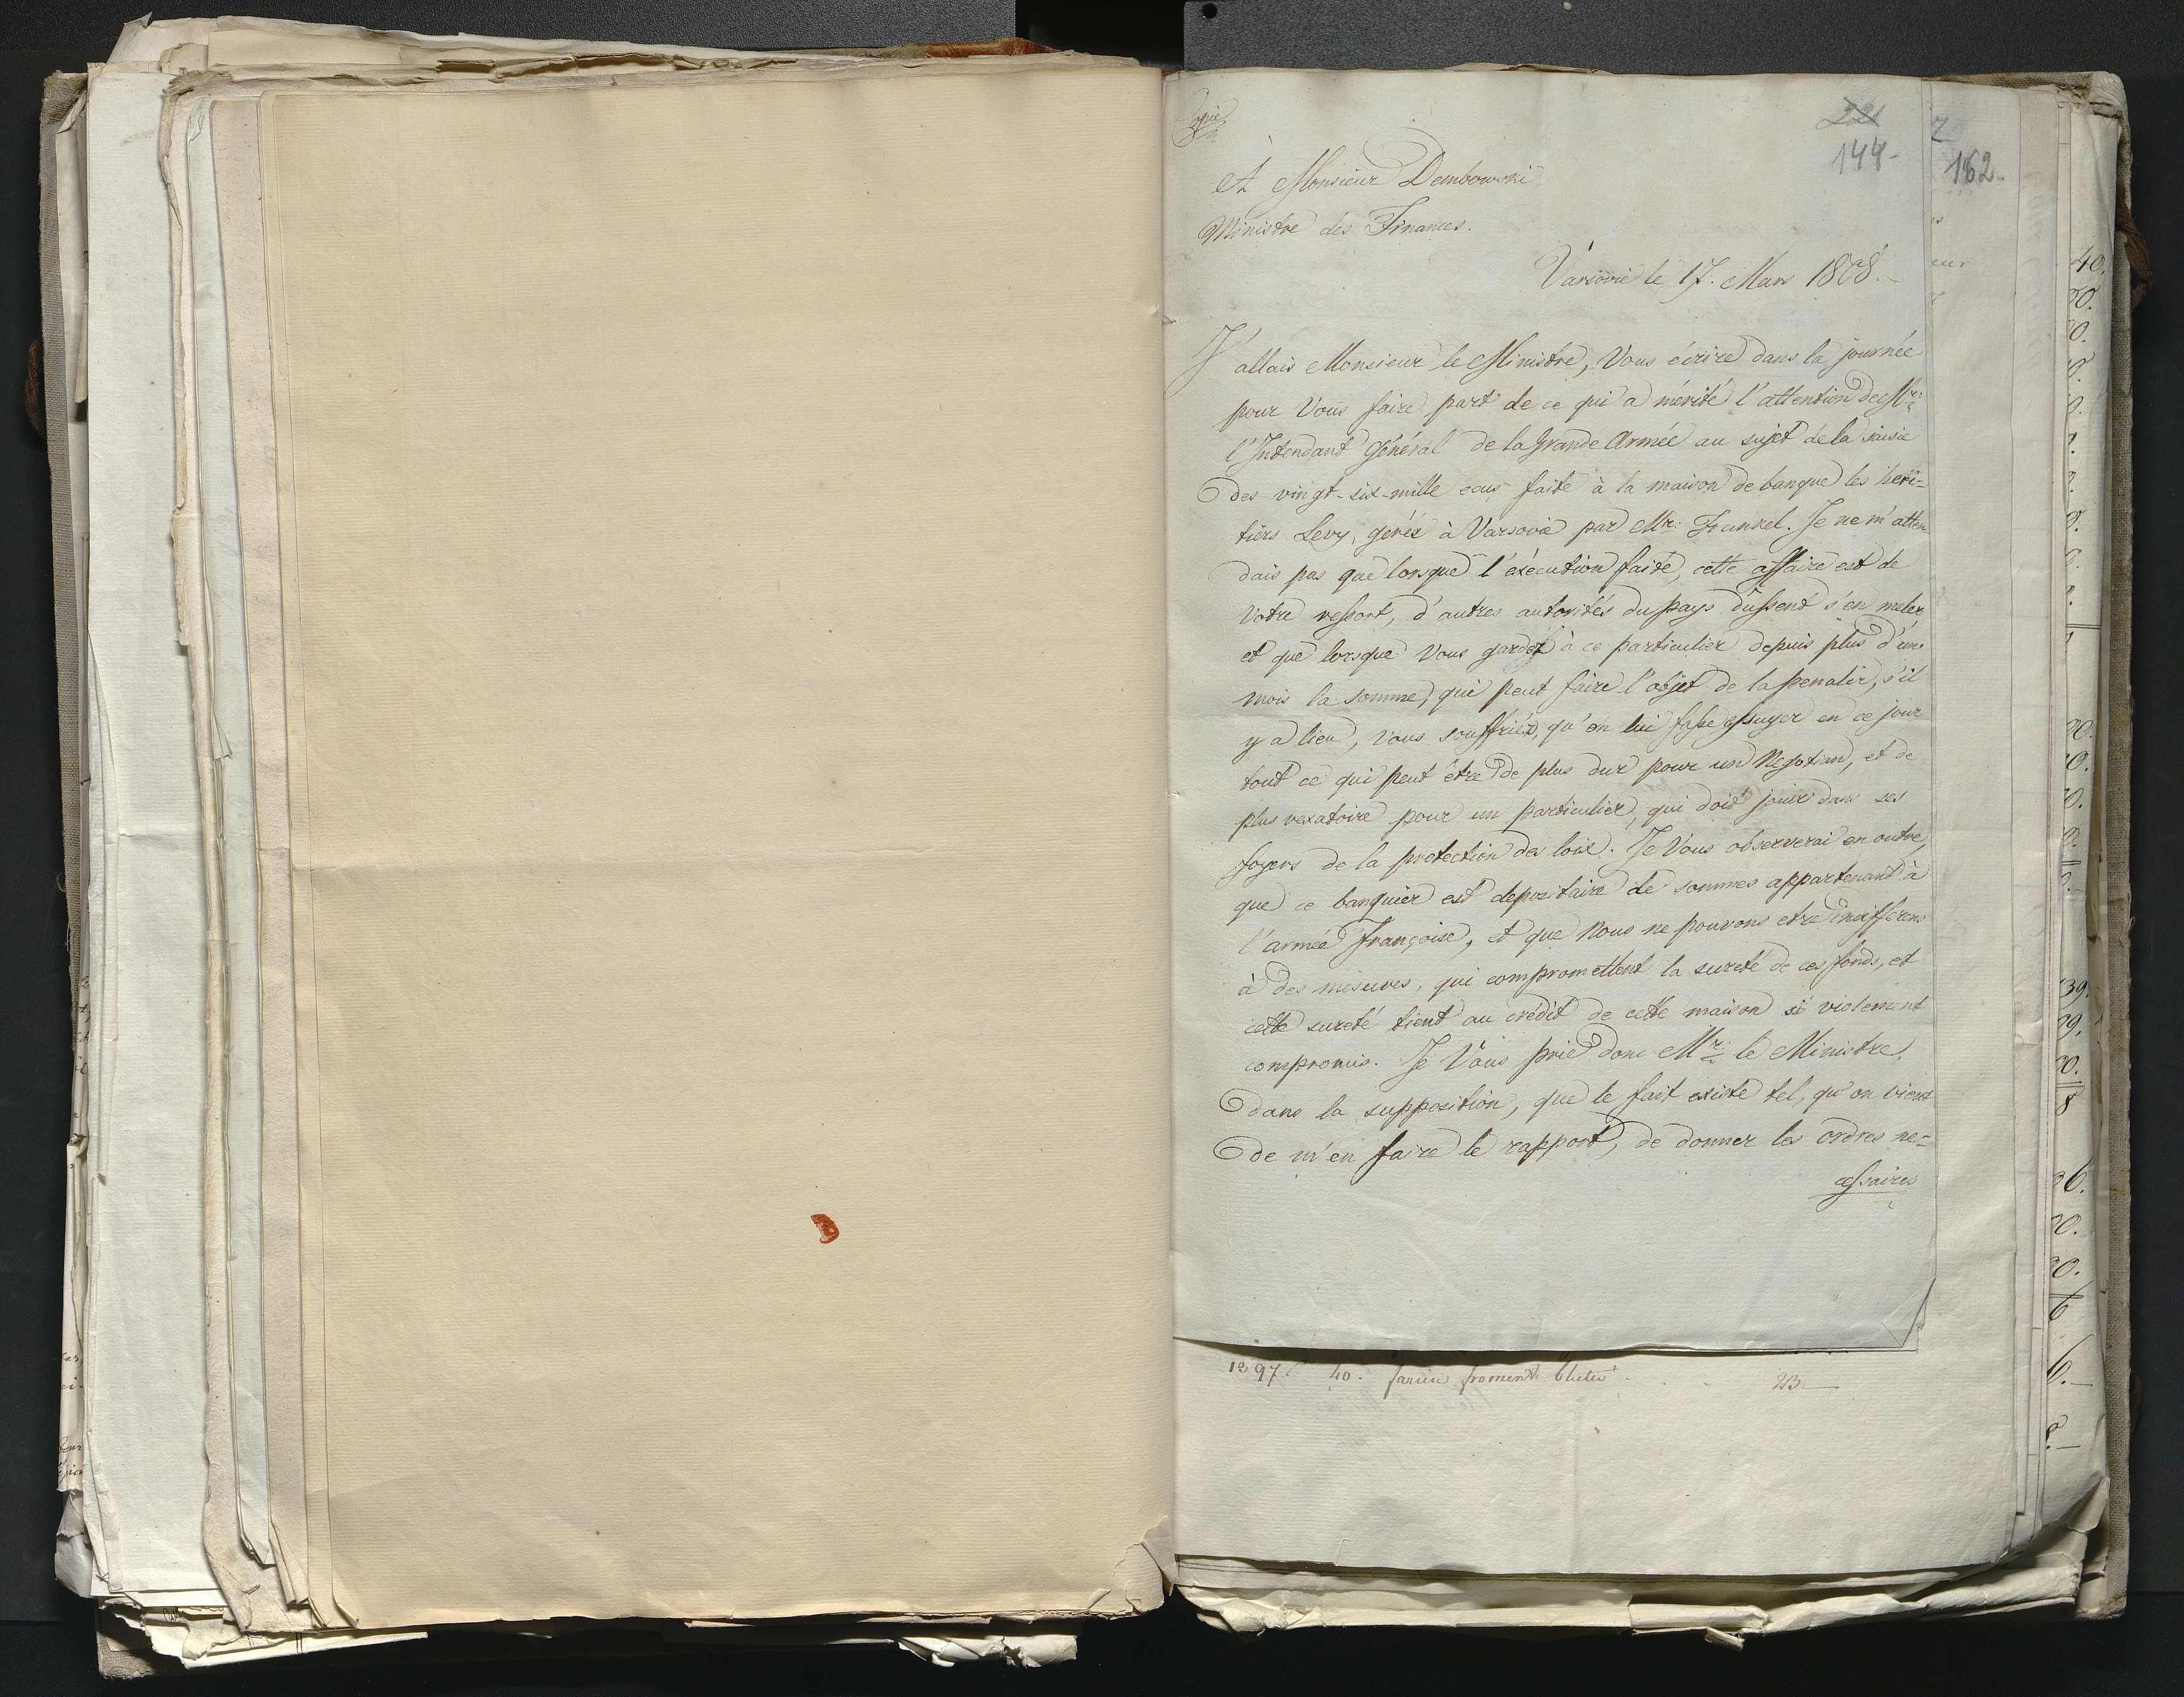 Copie
221
144-
162-
A Monsieur Dembowski
Ministre des Finances.
Varsovie le 17. Mars 1808.
J'allais Monsieur le Ministre, Vous écrire dans la journée
pour Vous faire part de ce qui a mérité l'attention de Mr:
l'Intendant général de la Grande Armée au sujet de la saisie
des vingt-six-mille ecus faite à la maison de banque les heri-
tiers Levy, gérée à Varsovie par Mr: Frankel. Je ne m'atten
dais pas que lorsque l'exécution faite, cette affaire est de
Votre ressort, d'autres autorités du pays dussent s'en meler
et que lorsque Vous gardez à ce particulier depuis plus d'un
mois la somme, qui peut faire l'objet de la penalir, s'il
y a lieu, vous souffriéz, qu'on lui fasse essuyer en ce jour
tout ce qui peut être de plus dur pour un Negotian, et de
plus vexatoire pour un particulier, qui doit jouir dans ses
foyers de la protection des loix. Je Vous observerai en outre,
que ce banquier est depositaire de sommes appartenant à
l'armée françoise, et que Nous ne pouvons etre indifferens
à des mesures, qui compromettent la sureté de ces fonds, et
cette sureté tient au crédit de cette maison si violement
compromis. Je Vous prie donc Mr: le Ministre,
dans la supposition, que le fait existe tel, qu'on vient
de m'en faire le rapport, de donner les ordres ne-
cessaires
1297. 40. farine froment bluté 23—